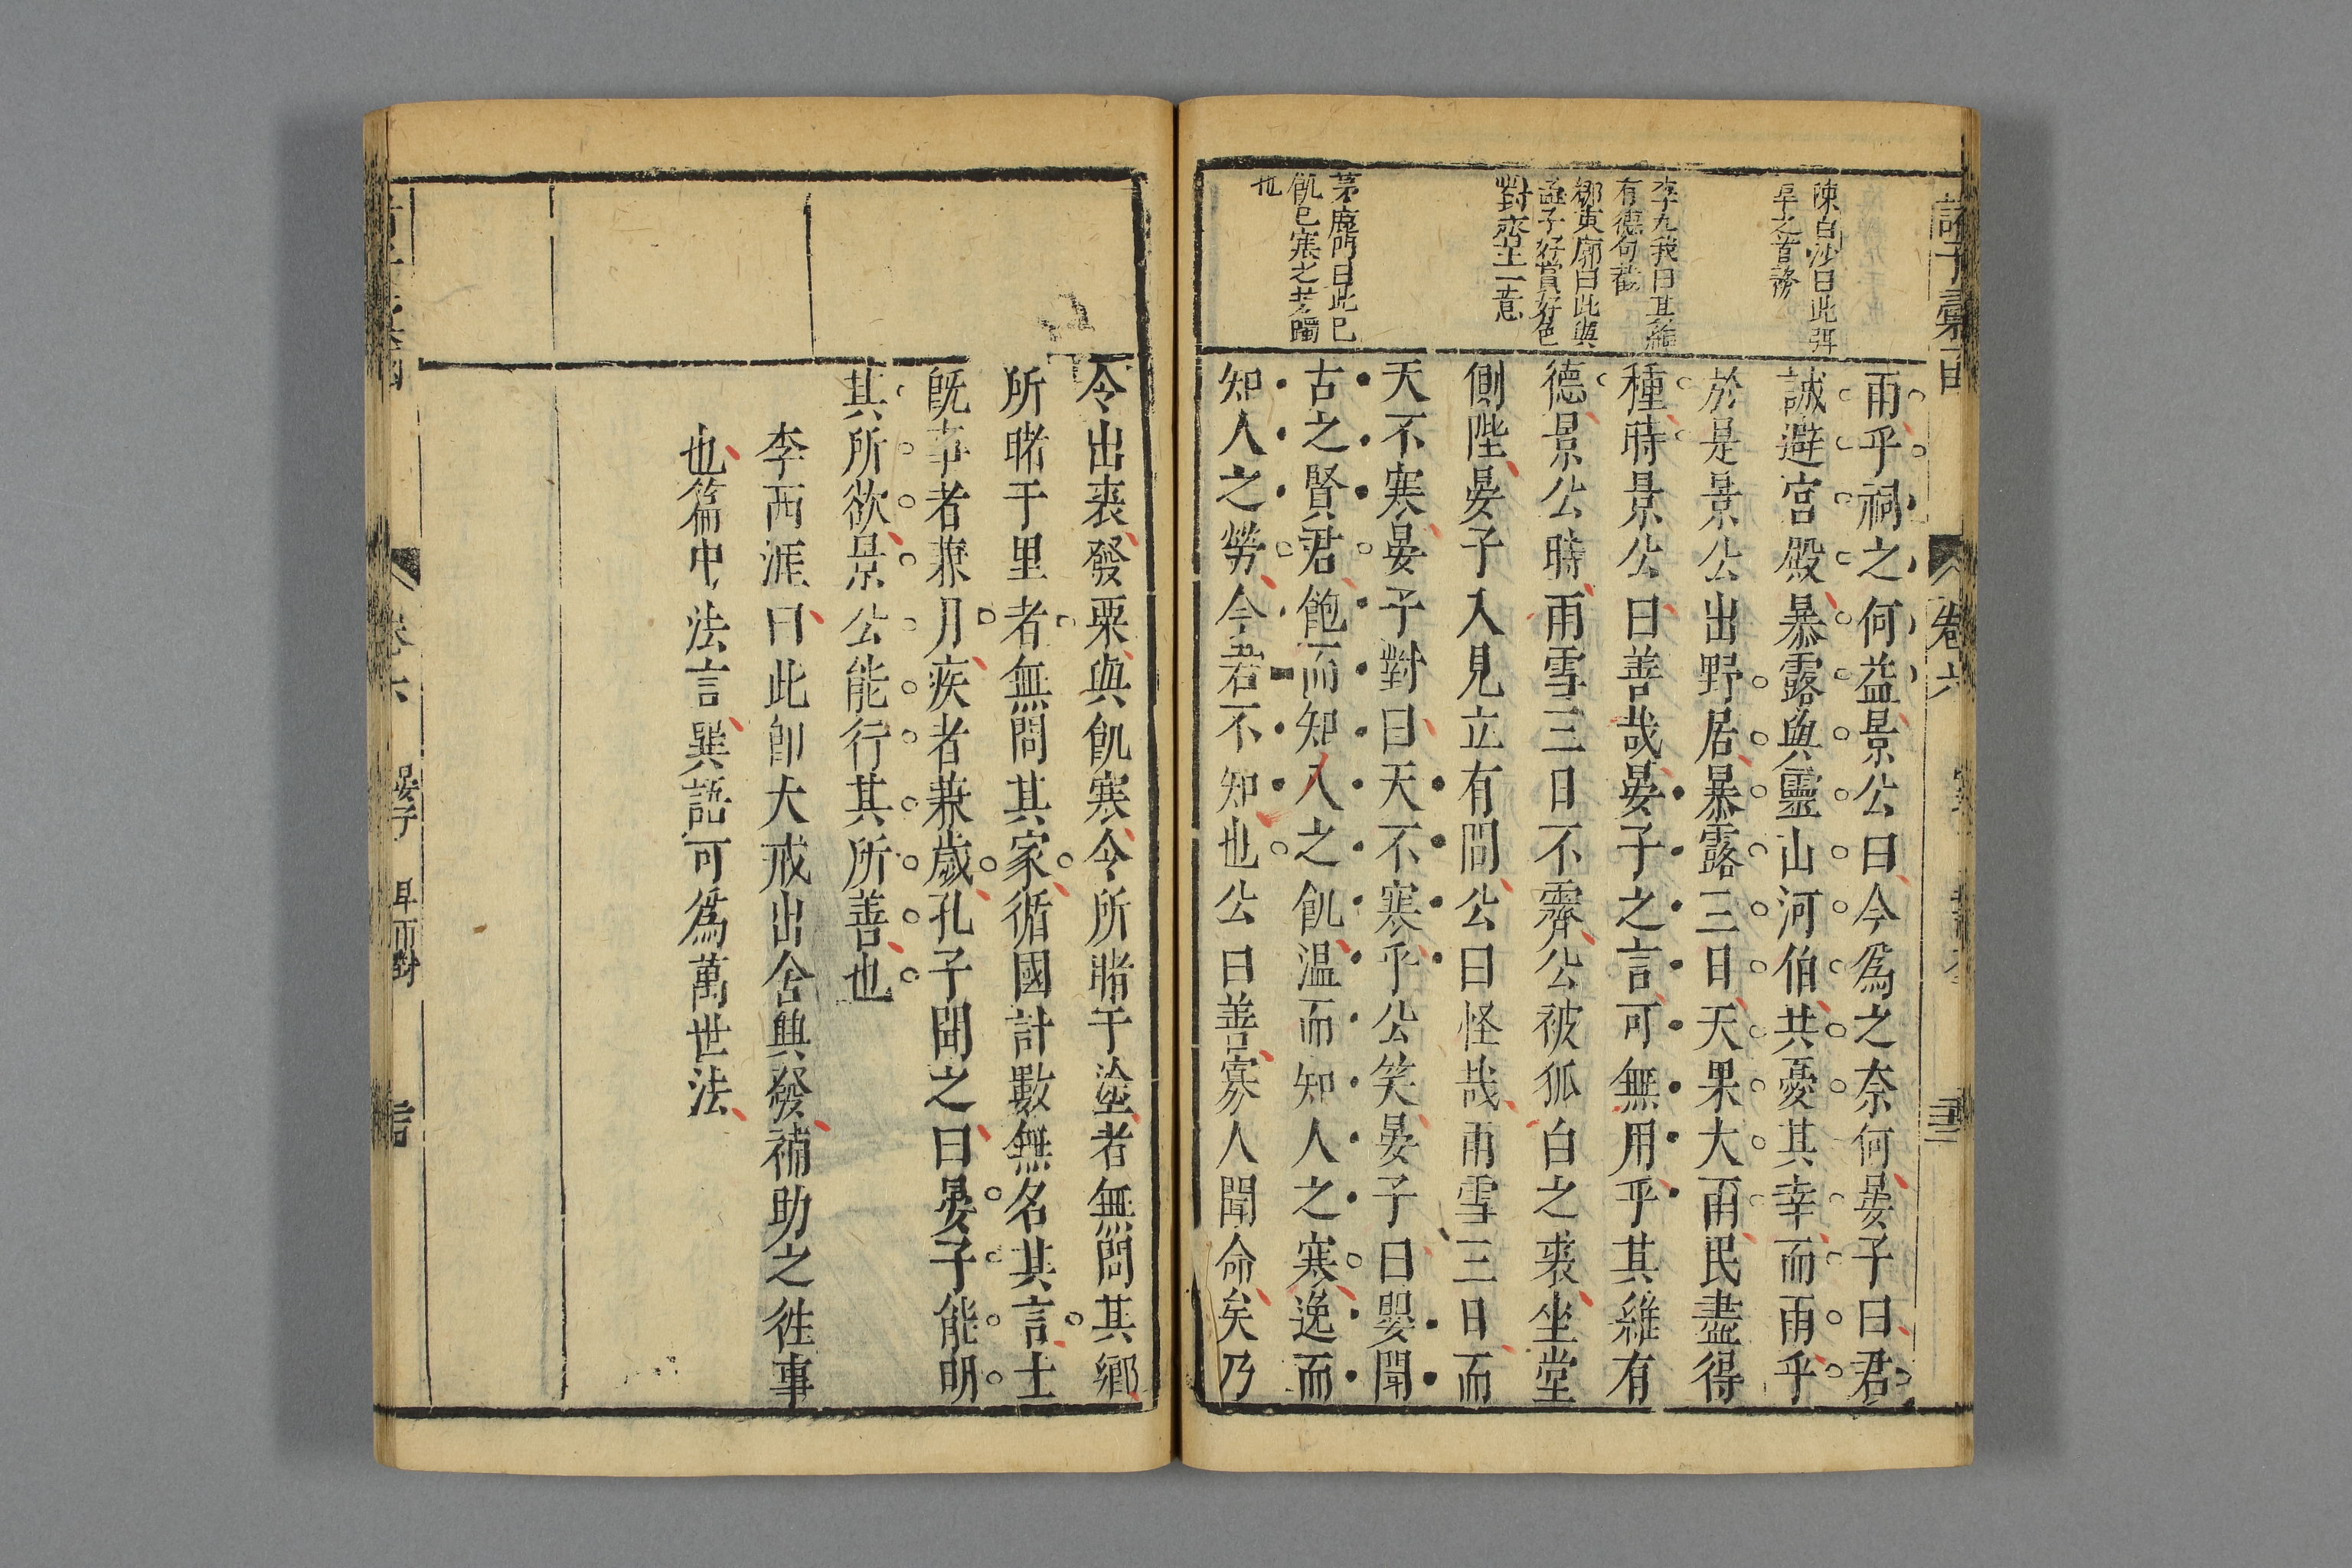 陳白沙曰此弭
旱之首務
李九我曰其維
有德句截
鄒東廓曰此與
孟子好貨好色
對齊王一意
茅鹿門曰此已
飢已寒之者獨
也
雨乎祠之何益景公曰今爲之奈何晏子曰君
誠避宮殿暴露與靈山河伯共憂其幸而雨乎
於是景公出野居暴露三日天果大雨民盡得
種時景公曰善哉晏子之言可無用乎其維有
德景公時雨雪三日不霽公被狐白之裘坐堂
側陛晏子入見立有間公曰怪哉雨雪三日而
天不寒晏子對曰天不寒乎公笑晏子曰嬰聞
古之賢君飽而知人之飢温而知人之寒逸而
知人之勞今君不知也公曰善寡人聞命矣乃
令出裘發粟與飢寒令所睹于塗者無問其鄉
所睹于里者無問其家循國計數無名其言士
旣事者兼月疾者兼歲孔子聞之曰晏子能明
其所欲景公能行其所善也
李西涯曰此卽大戒出舍興發補助之徃事
也篇中法言巽語可爲萬世法
卷六
晏子